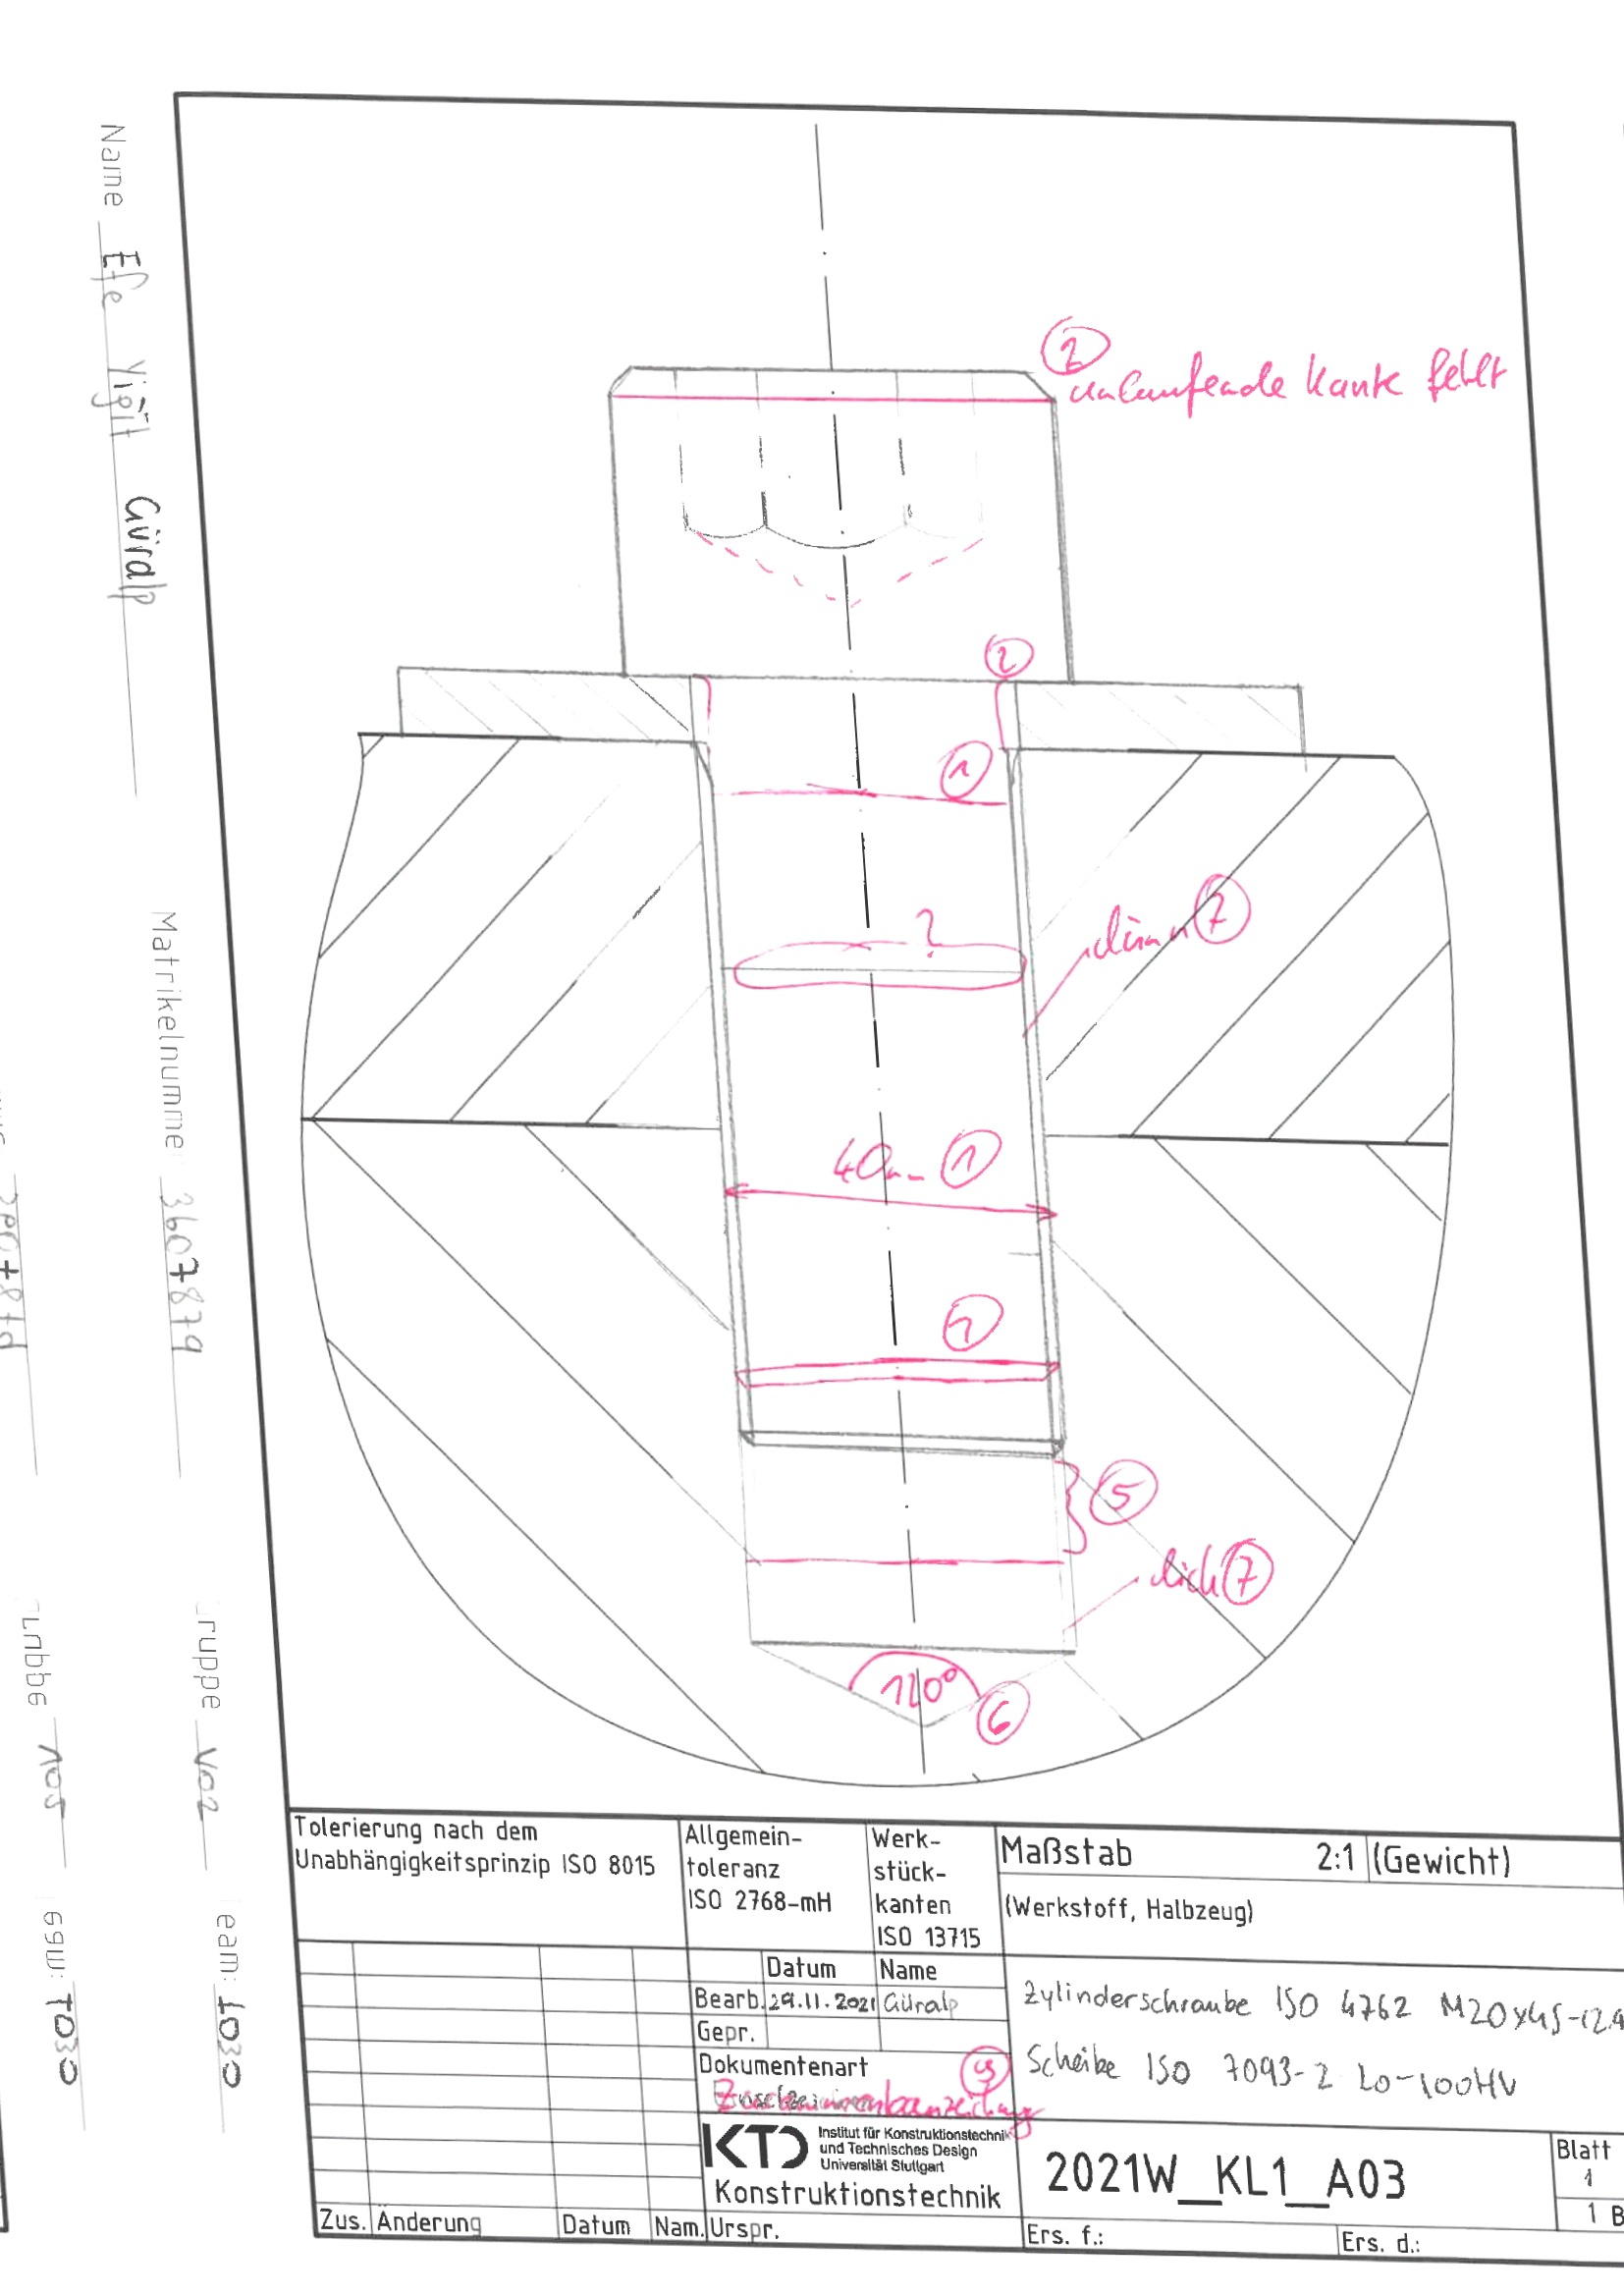 Name Efe Yiğit Güralp
Matrikelnumme 3607879
ruppe V02
eam: 1030
2
umlaufende Kante fehlt
2
1
?
dünn 7
40mm 1
7
5
dick 7
120°
6
Tolerierung nach dem
Unabhängigkeitsprinzip ISO 8015
Allgemein-
toleranz
ISO 2768-mH
Werk-
stück-
kanten
ISO 13715
Maßstab 2:1 (Gewicht)
(Werkstoff, Halbzeug)
Datum Name
Bearb. 29.11.2021 Güralp
Gepr.
Dokumentenart
Zusammenbauzeichnung
Zylinderschraube ISO 4762 M20x45-12.9
Scheibe ISO 7093-2 20-100HV
KTD
Institut für Konstruktionstechnik
und Technisches Design
Universität Stuttgart
Konstruktionstechnik
2021W_KL1_A03
Blatt
1
1 B
Zus. Änderung Datum Nam. Urspr. Ers. f.: Ers. d.: